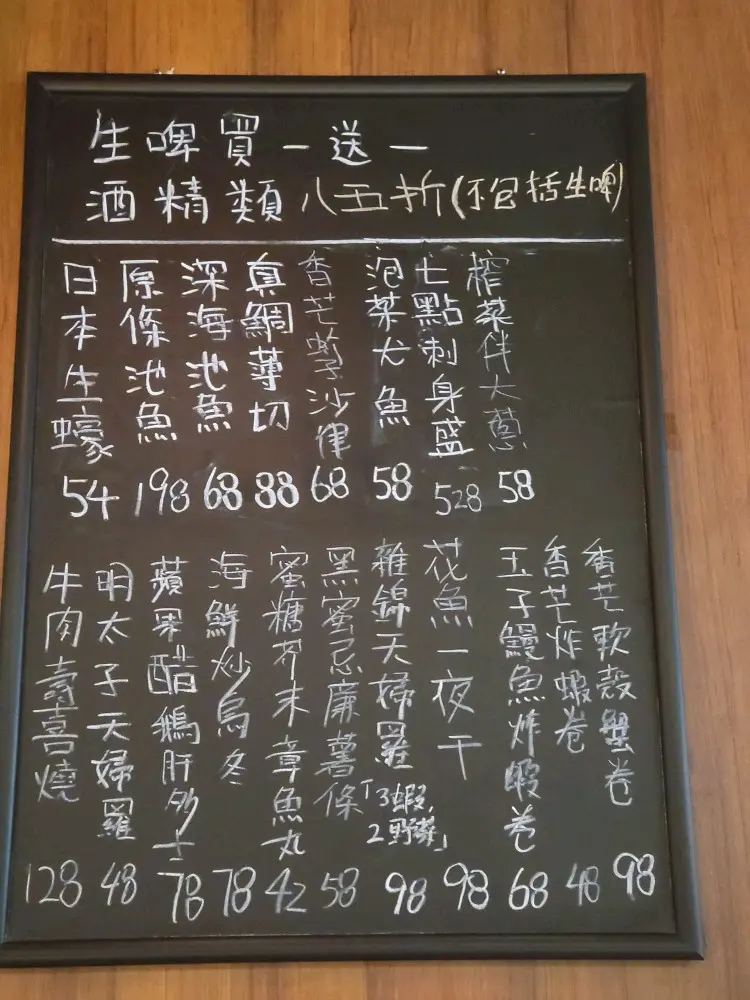 生啤買一送一
酒精類八五折(不包括生啤)
日本生蠔 54
原條池魚 198
深海池魚 68
真鯛薄切 88
香芒沙律 68
泡菜犬魚 58
七點刺身盛 528
榨菜伴大蔥 58
牛肉壽喜燒 128
明太子天婦羅 48
蘋果醋鵝肝多士 78
海鮮炒烏冬 78
蜜糖芥末章魚丸 42
黑蜜忌廉薯條 58
雜錦天婦羅「3蝦,2野菜」 98
花魚一夜干 98
玉子鰻魚炸蝦卷 68
香芒炸蝦卷 48
香芒軟殼蟹卷 98